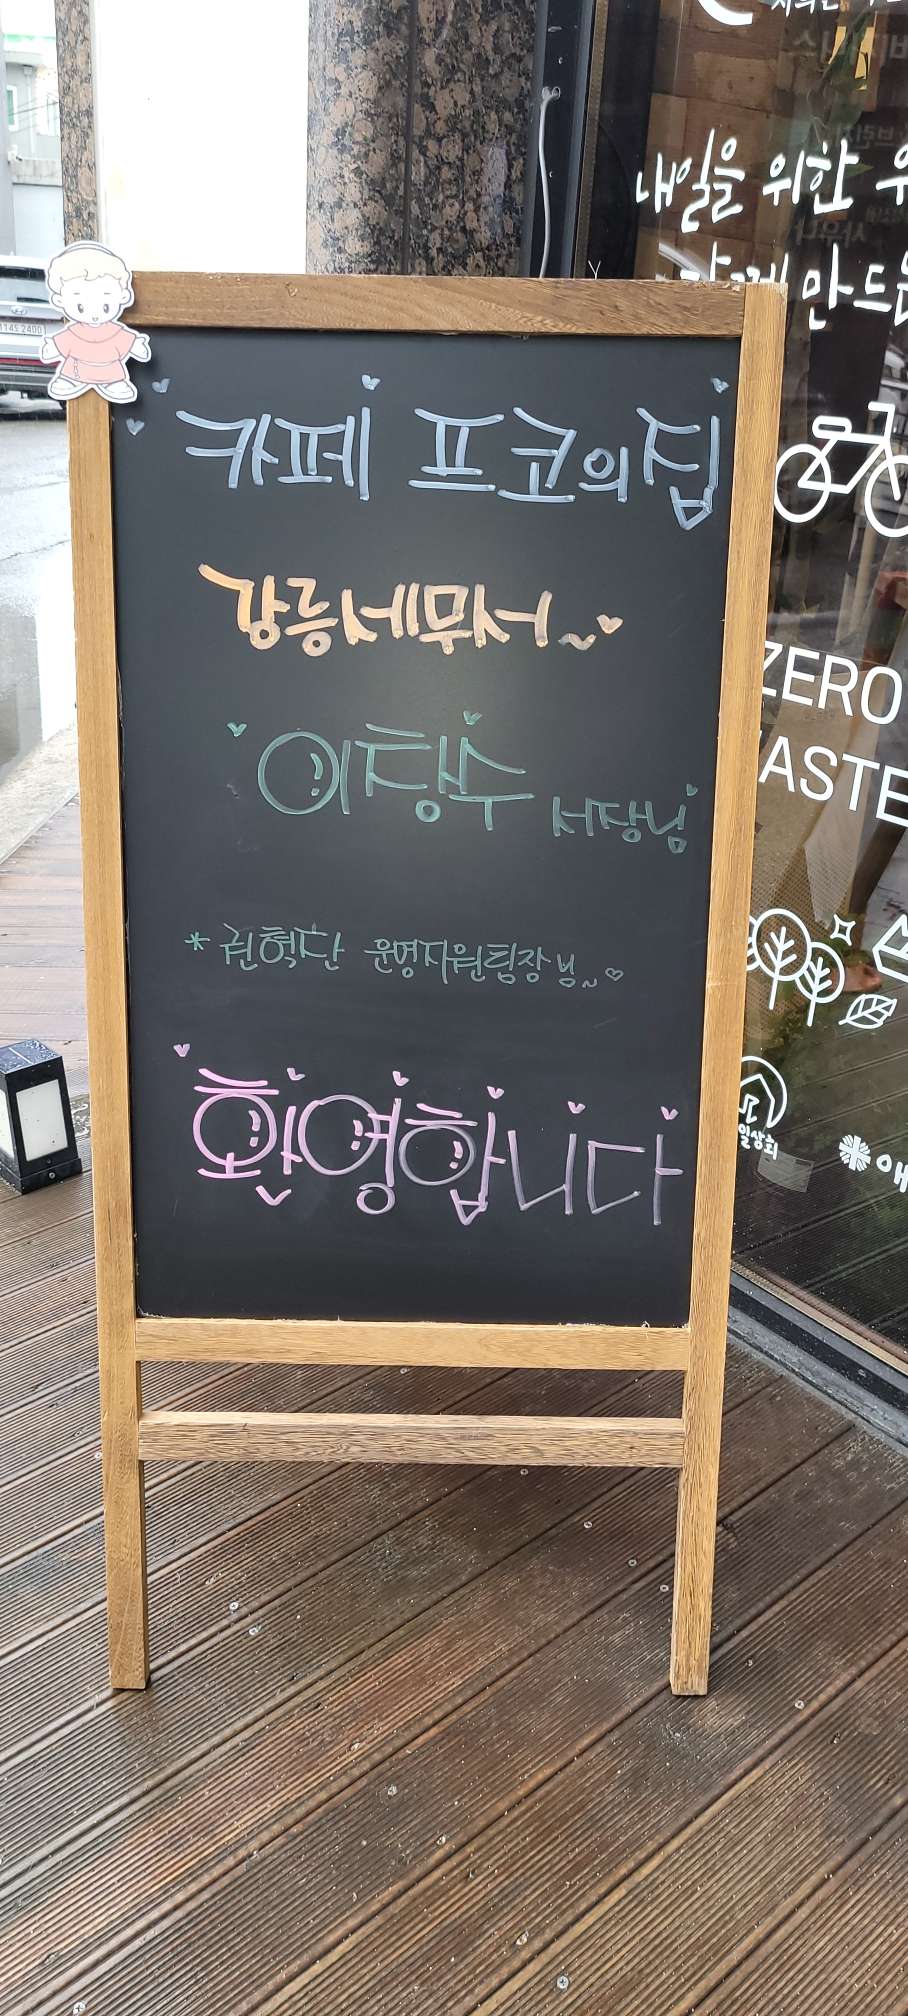 카페 프코의집
강릉세무서~
이창수 서장님
* 권혁찬 운영지원팀장님~
환영합니다
내일을 위한
만드는
ZERO
일상회
114S 2400